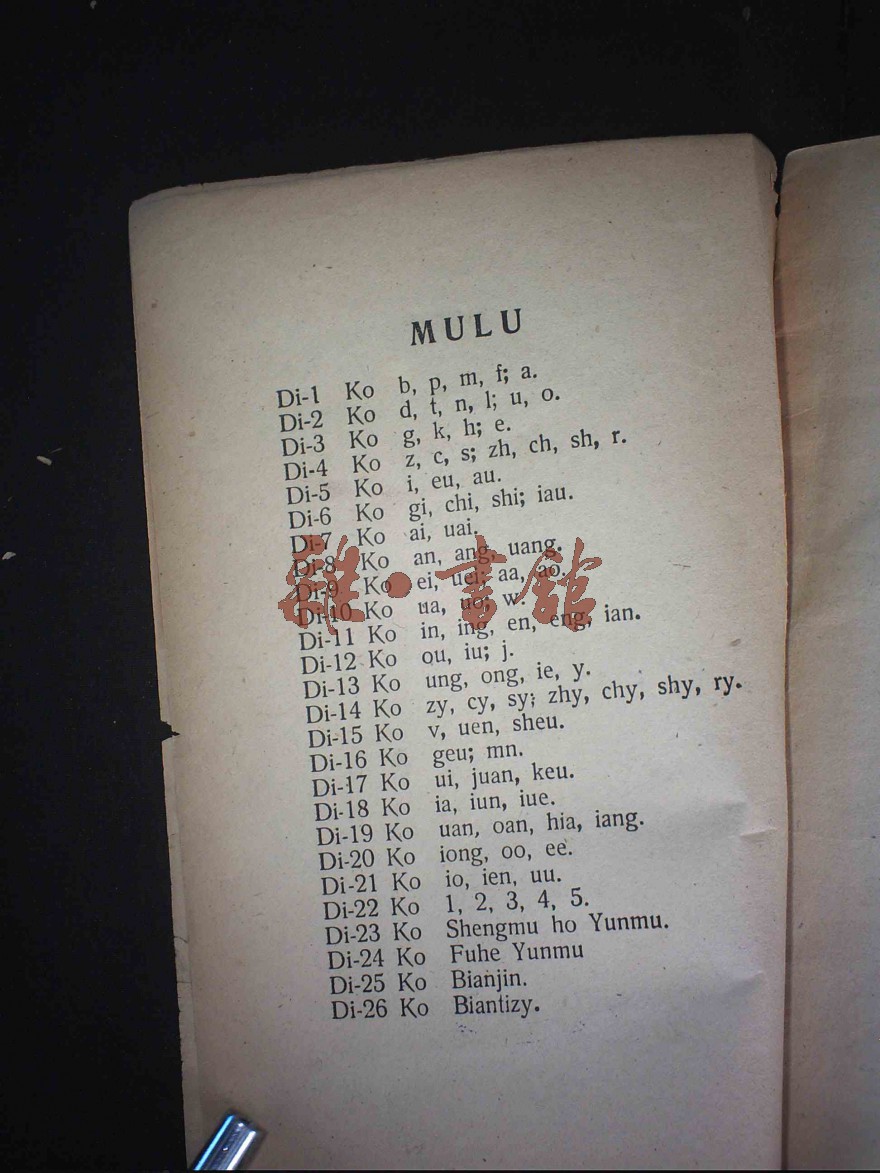 MULU
Di-1 Ko b, p, m, f; a.
Di-2 Ko d, t, n, l; u, o.
Di-3 Ko g, k, h; e.
Di-4 Ko z, c, s; zh, ch, sh, r.
Di-5 Ko i, eu, au.
Di-6 Ko gi, chi, shi; iau.
Di-7 Ko ai, uai.
Di-8 Ko an, ang, uang.
Di-9 Ko ei, uei; aa, ao.
Di-10 Ko ua, uo; w.
Di-11 Ko in, ing, en, eng, ian.
Di-12 Ko ou, iu; j.
Di-13 Ko ung, ong, ie, y.
Di-14 Ko zy, cy, sy; zhy, chy, shy, ry.
Di-15 Ko v, uen, sheu.
Di-16 Ko geu; mn.
Di-17 Ko ui, juan, keu.
Di-18 Ko ia, iun, iue.
Di-19 Ko uan, oan, hia, iang.
Di-20 Ko iong, oo, ee.
Di-21 Ko io, ien, uu.
Di-22 Ko 1, 2, 3, 4, 5.
Di-23 Ko Shengmu ho Yunmu.
Di-24 Ko Fuhe Yunmu
Di-25 Ko Bianjin.
Di-26 Ko Biantizy.
雜·書館